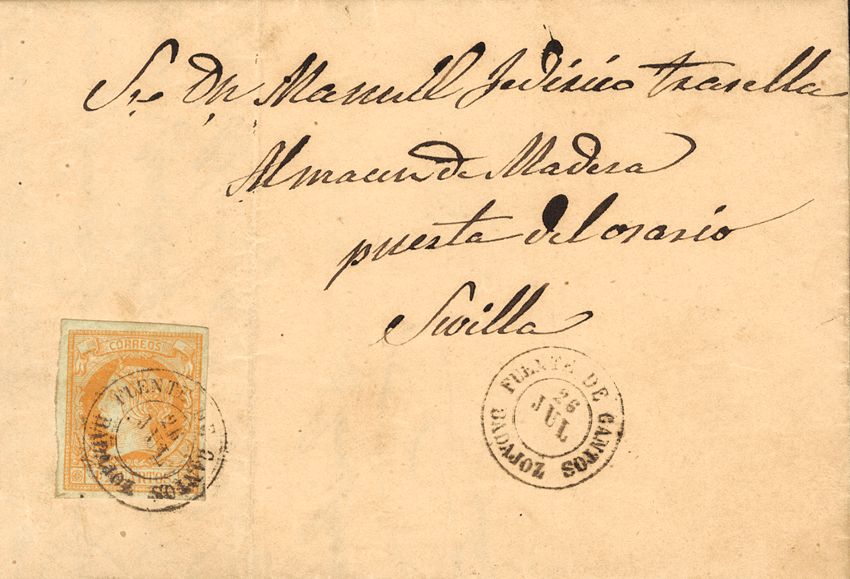 Sr. Dn. Manuel Federico
Almacen de Madera
puerta del osario
Sevilla
CORREOS
FUENTE DE CANTOS
26
JUL
BADAJOZ
FUENTE DE CANTOS
26
JUL
BADAJOZ